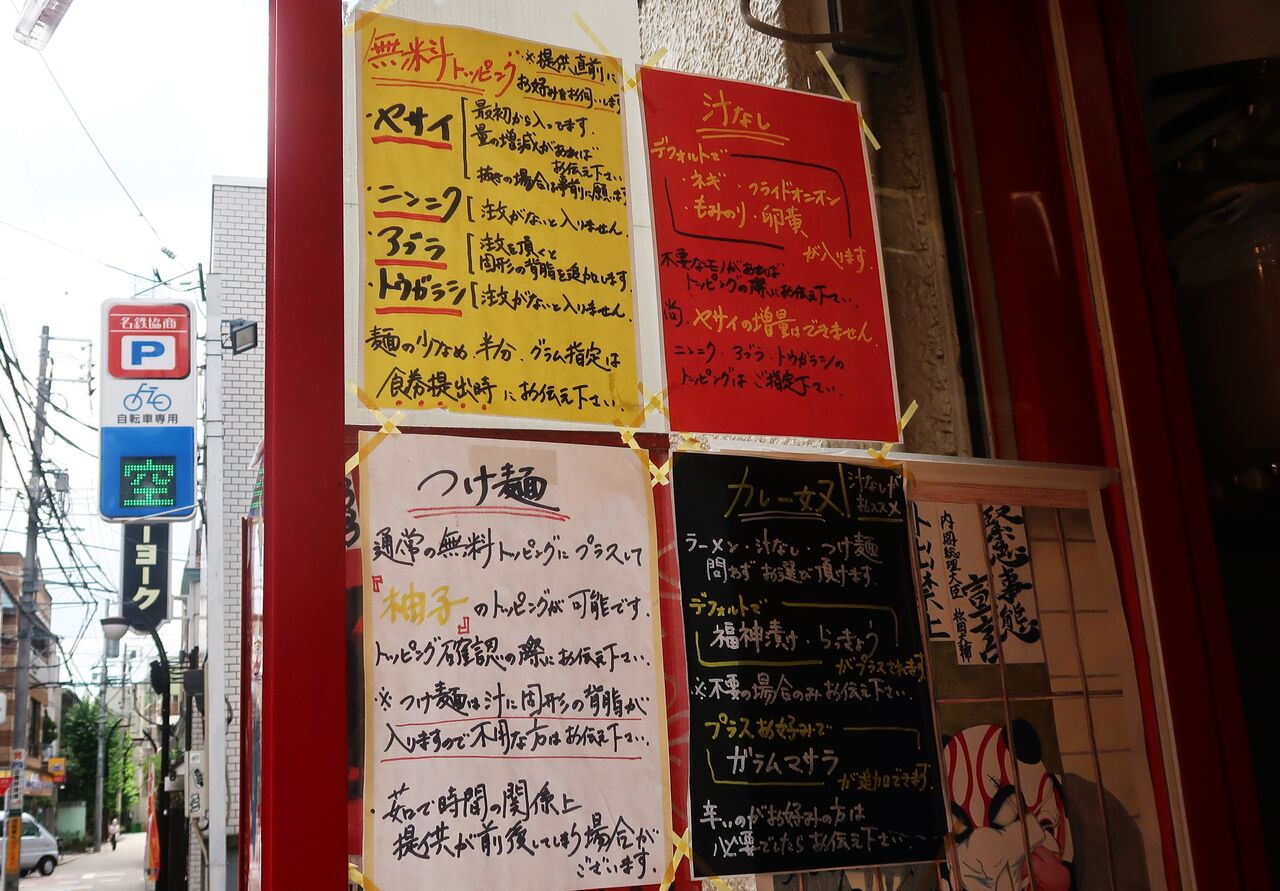 無料トッピング
※提供直前に
お好みをお伺いします
・ヤサイ
最初から入ってます.
量の増減があれば
お伝え下さい
抜きの場合は事前に願います
・ニンニク
注文がないと入りません.
・アブラ
注文を頂くと
固形の背脂を追加します.
・トウガラシ
注文がないと入りません.
麺の少なめ.半分.グラム指定は
食券提出時にお伝え下さい.
汁なし
デフォルトで
・ネギ・フライドオニオン
・もみのり・卵黄
が入ります.
不要なモノがあれば
トッピングの際にお伝え下さい.
尚.ヤサイの増量はできません.
ニンニク・アブラ・トウガラシの
トッピングはご指定下さい.
つけ麺
通常の無料トッピングにプラスして
『柚子』のトッピングが可能です.
トッピング確認の際にお伝え下さい.
※つけ麺は汁に固形の背脂が
入りますので不用な方はお伝え下さい.
・茹で時間の関係上
提供が前後してしまう場合が
ございます.
カレー女又
汁なしが
オススメ
ラーメン・汁なし・つけ麺
問わずお選び頂けます.
デフォルトで
福神漬け・らっきょう
がプラスされます
※不要の場合のみお伝え下さい.
プラスお好みで
ガラムマサラ
が追加できます.
辛いのがお好みの方は
必要でしたらお伝え下さい.
緊急事態
宣言
内閣総理大臣
名鉄協商
P
自転車専用
空
ーヨーク